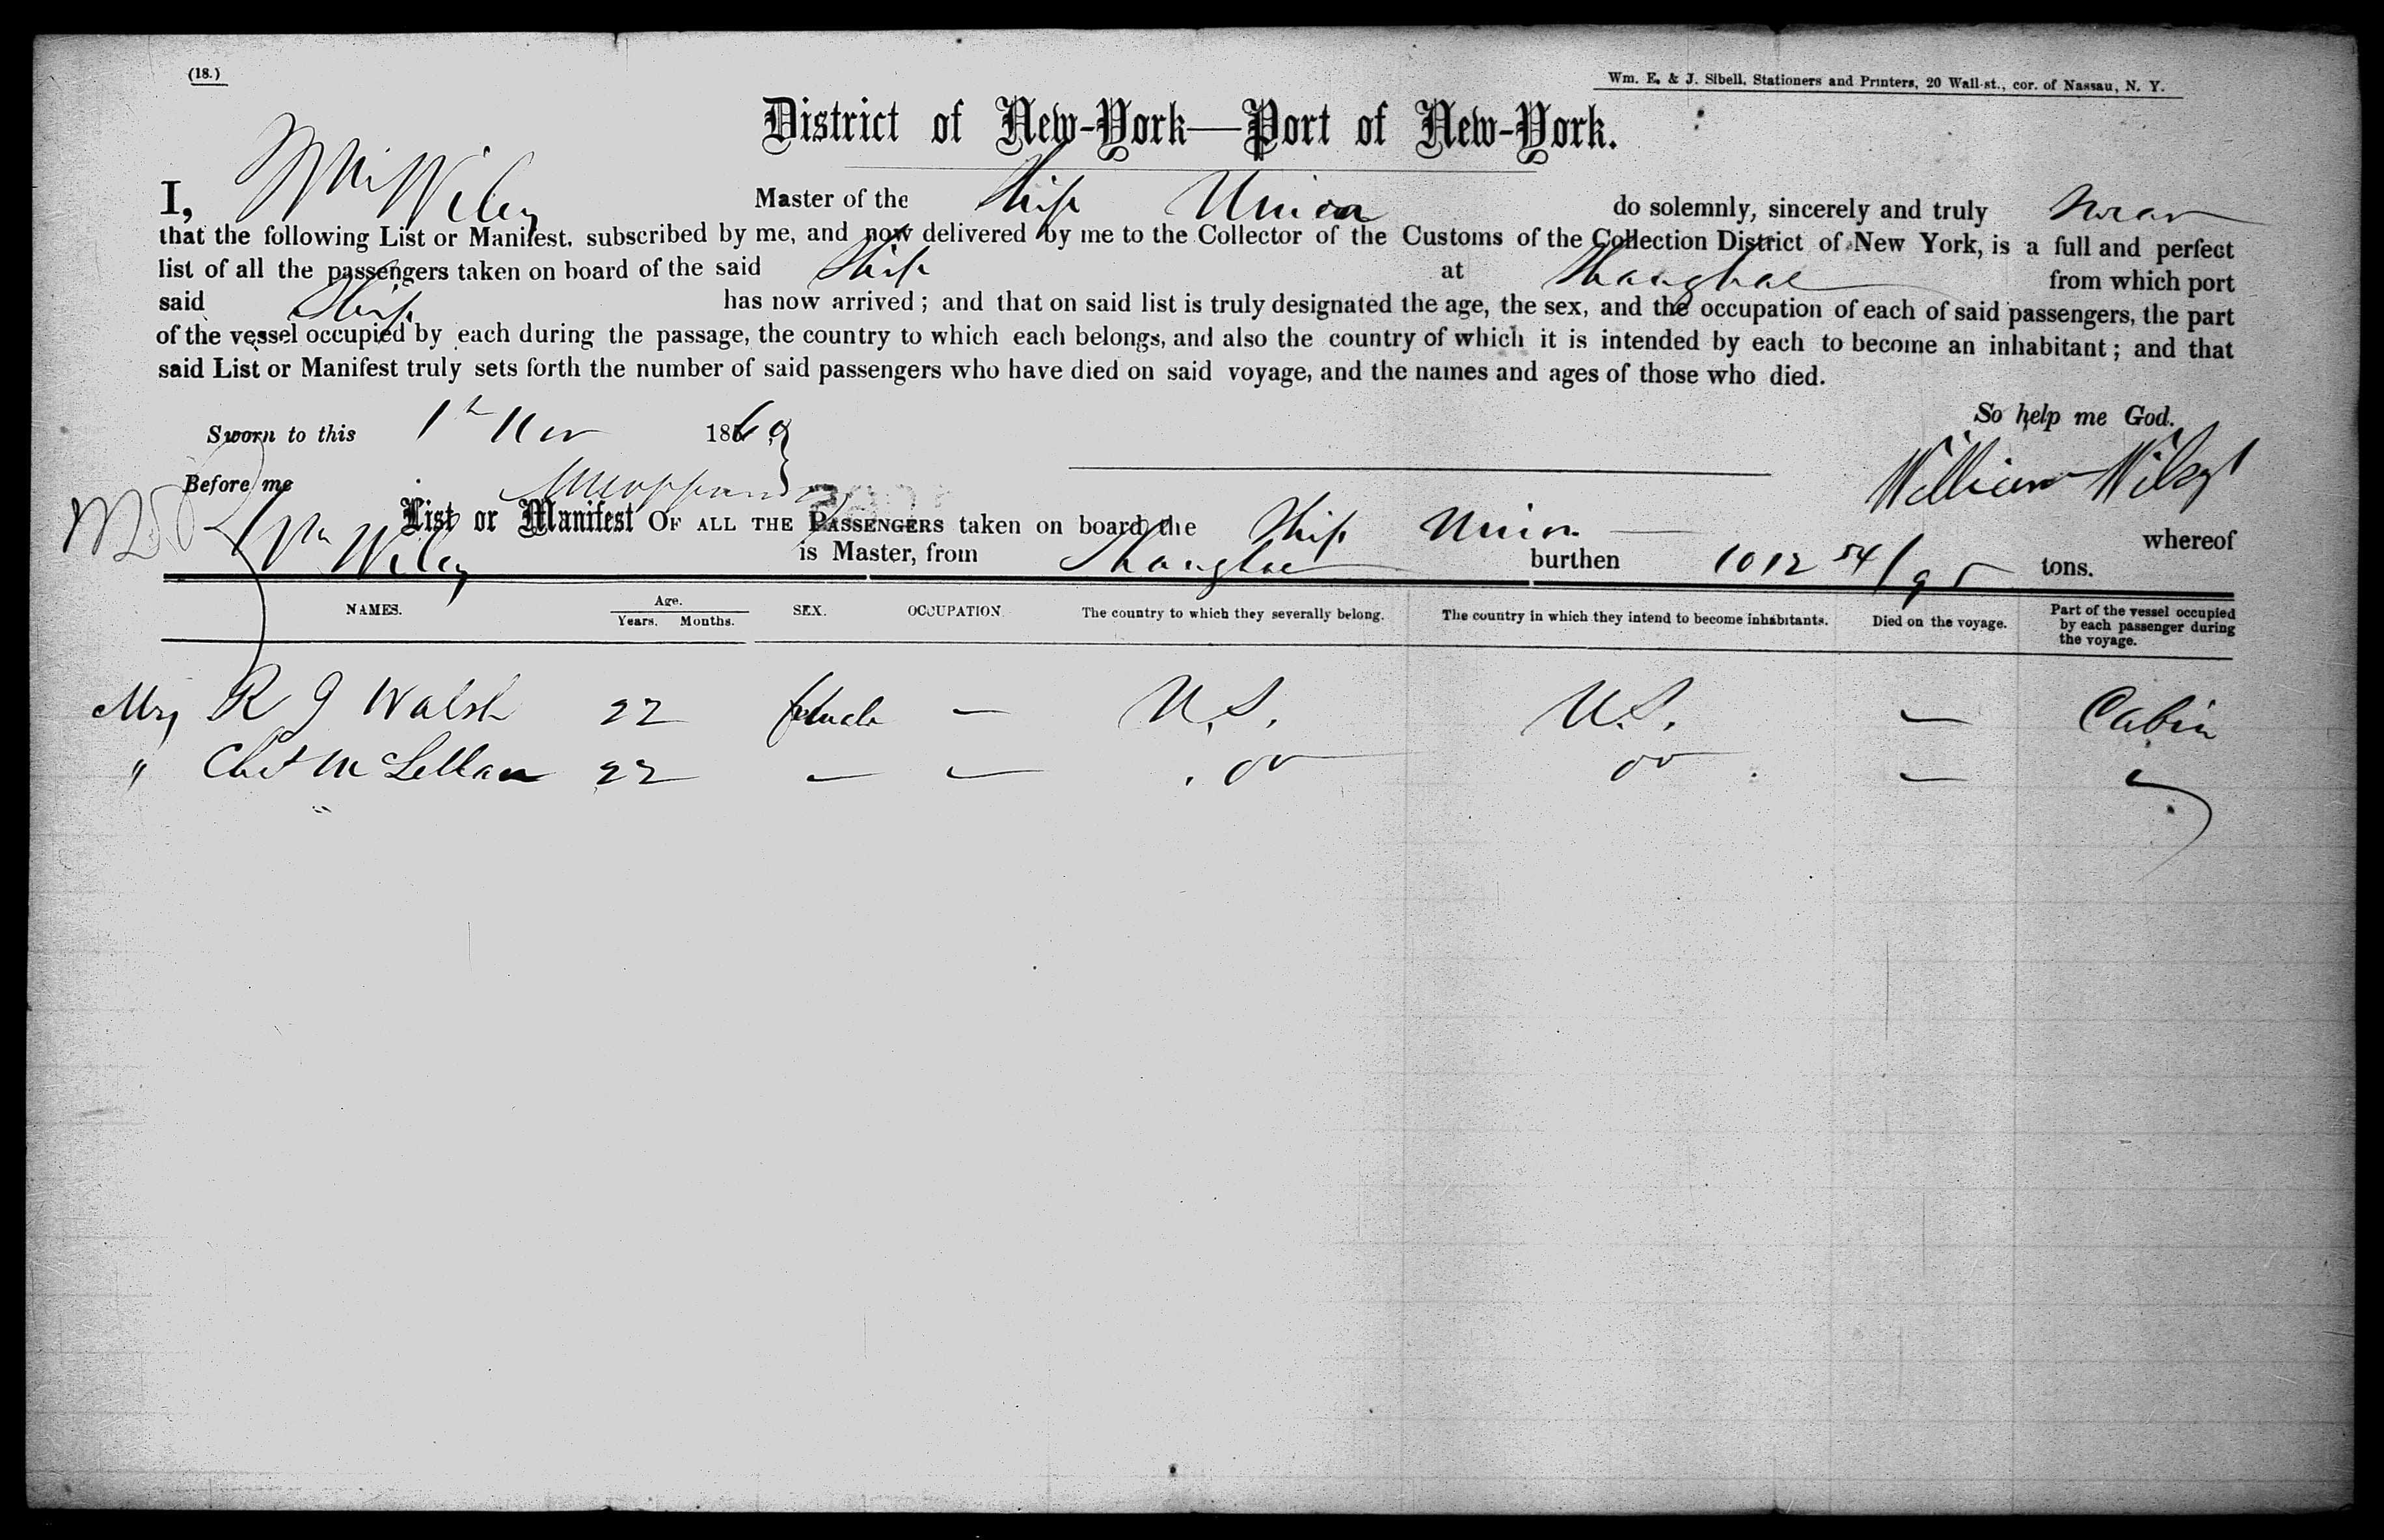 (18.)
Wm. E. & J. Sibell, Stationers and Printers, 20 Wall-st., cor. of Nassau, N. Y.
District of New-York—Port of New-York.
I, Wm Wiley Master of the Ship Union do solemnly, sincerely and truly swear
that the following List or Manifest, subscribed by me, and now delivered by me to the Collector of the Customs of the Collection District of New York, is a full and perfect
list of all the passengers taken on board of the said Ship at Shanghae from which port
said Ship has now arrived; and that on said list is truly designated the age, the sex, and the occupation of each of said passengers, the part
of the vessel occupied by each during the passage, the country to which each belongs, and also the country of which it is intended by each to become an inhabitant; and that
said List or Manifest truly sets forth the number of said passengers who have died on said voyage, and the names and ages of those who died.
So help me God.
Sworn to this 1st Nov 1860
Before me
William Wiley
List or Manifest OF ALL THE PASSENGERS taken on board the Ship Union whereof
Wm Wiley is Master, from Shanghae burthen 1012 54/95 tons.
NAMES. Age. Years. Months. SEX. OCCUPATION. The country to which they severally belong. The country in which they intend to become inhabitants. Died on the voyage. Part of the vessel occupied by each passenger during the voyage.
Mrs R J Walsh 22 female — U.S. U.S. — Cabin
" McLellan 22 — — do do — "